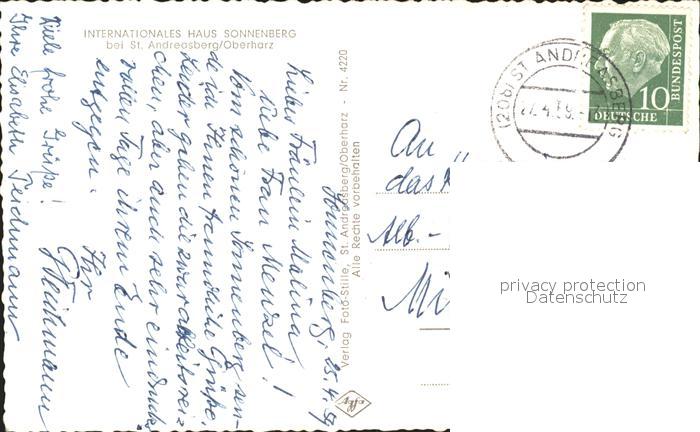 INTERNATIONALES HAUS SONNENBERG
bei St. Andreasberg/Oberharz
Sonnenberg, 25.4.59
Liebes Fräulein Malina!
liebe Frau Menzel!
Vom schönen Sonnenberg sen-
de ich Ihnen freundliche Grüße.
Leider gehen die zwar arbeitsrei-
chen, aber auch sehr eindrucks-
vollen Tage ihrem Ende
entgegen.
Ihr
Viele frohe Grüße!
Ihre Elisabeth
Verlag Foto-Stille, St. Andreasberg/Oberharz - Nr. 4220
Alle Rechte vorbehalten
Agfa
An
das
Alb.-
(20b) ST. ANDREASBERG
DEUTSCHE
BUNDESPOST
10
privacy protection
Datenschutz